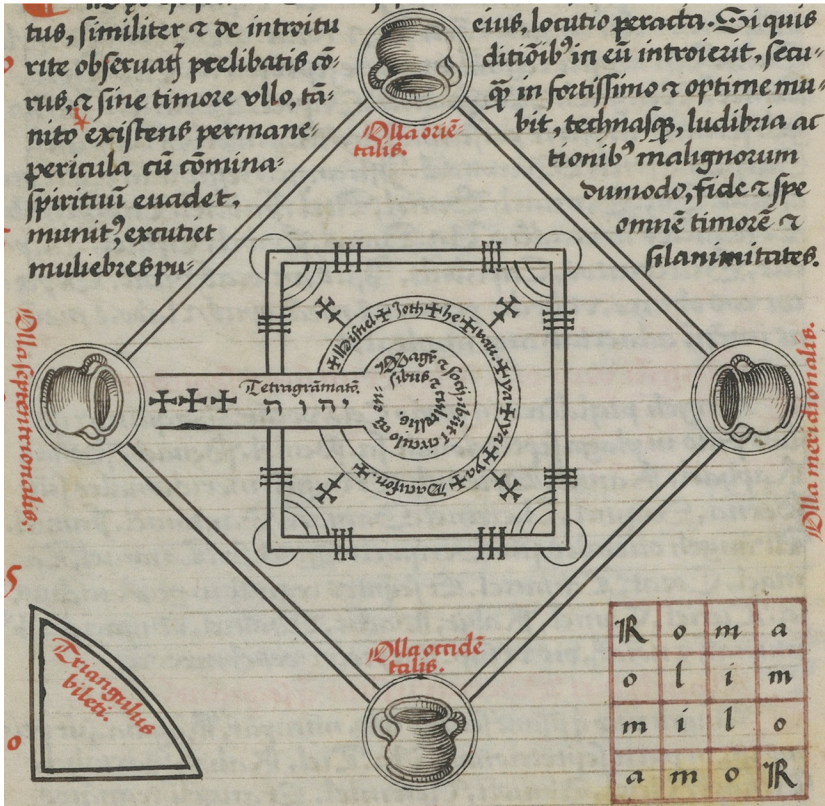 tus, similiter ⁊ de introitu
rite obseruatꝭ prelibatis cō-
rus, ⁊ sine timore vllo, tā-
nito existens permane-
pericula cū cōmina-
spirituū euadet,
munitꝰ, excutiet
muliebres pu-
eius, locutio peracta. Si quis
ditiōibꝰ in eū introierit, secu-
qꝫ in fortissimo ⁊ optime mu-
bit, technasqꝫ, ludibria ac
tionibꝰ malignorum
dumodo, fide ⁊ spe
omnē timorē ⁊
silanimitates.
Olla oriē-
talis.
Olla septentrionalis.
Olla meridionalis.
✠ Misnel ✠ Joth ✠ he ✠ vau ✠ ya ✠ ya ✠ ya ✠
Tetragrāmatō.
✠ ✠ ✠ יהוה
Olla occidē
talis.
Triangulus
bileti.
R o m a
o l i m
m i l o
a m o R